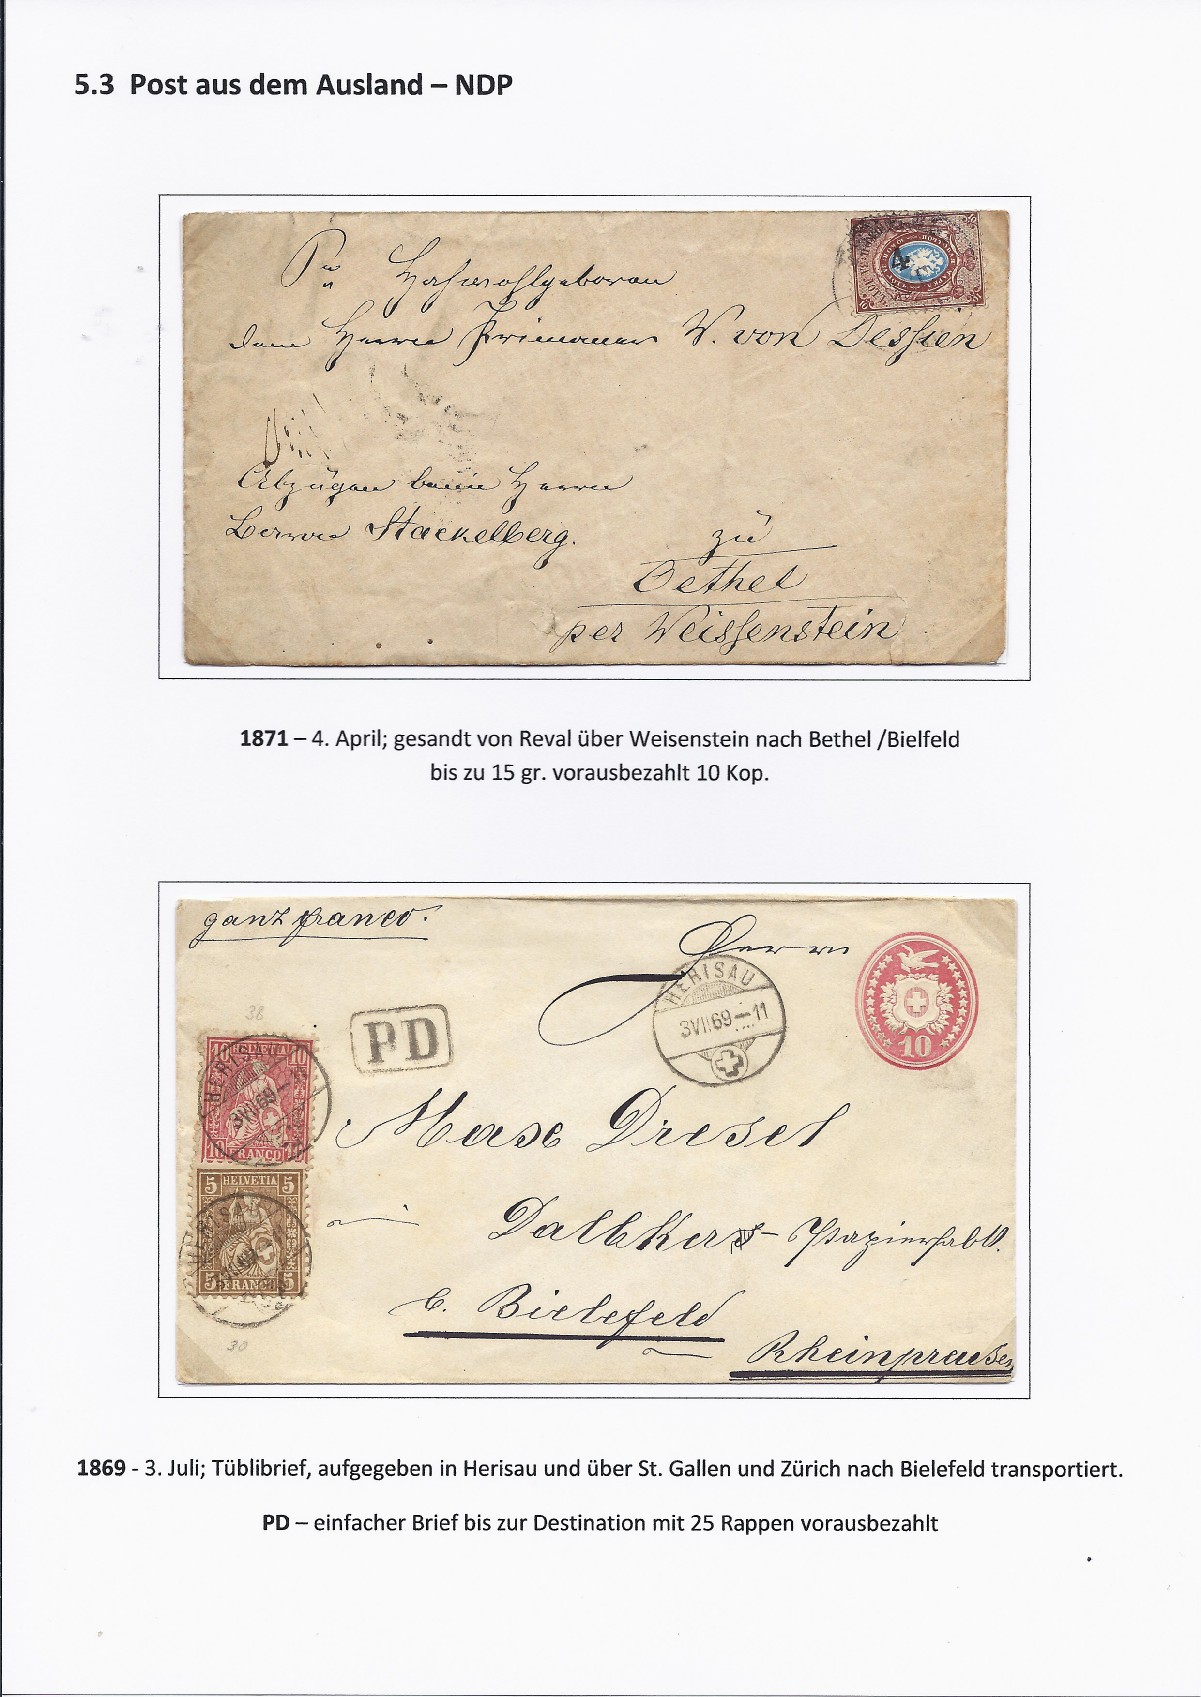 5.3 Post aus dem Ausland – NDP
Hochwohlgeboren
dem Herrn Primaner W. von Dessien
4
Abzugeben beim Herrn
Baron Stackelberg.
zu
Bethel
per Weissenstein
1871 – 4. April; gesandt von Reval über Weisenstein nach Bethel /Bielfeld
bis zu 15 gr. vorausbezahlt 10 Kop.
ganz franco.
Herrn
HERISAU
3VII69–11
10
38
PD
10 HELVETIA 10
HERISAU
3VII69–
10 FRANCO 10
Max Dresel
5 HELVETIA 5
5 FRANCO 5
Dalbker Papierfabk.
b. Bielefeld
Rheinpreussen
30
1869 - 3. Juli; Tüblibrief, aufgegeben in Herisau und über St. Gallen und Zürich nach Bielefeld transportiert.
PD – einfacher Brief bis zur Destination mit 25 Rappen vorausbezahlt